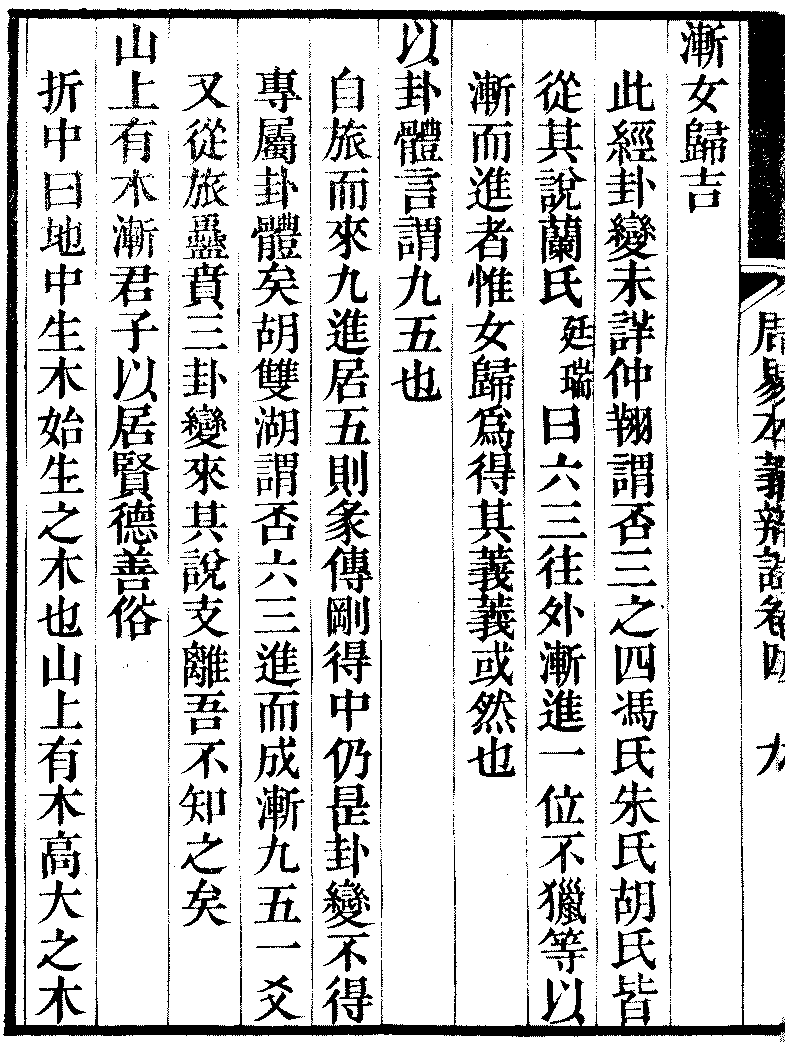 周易本義辨證卷四 九
漸女歸吉
此經卦變未詳仲翔謂否三之四馮氏朱氏胡氏皆
從其說蘭氏廷瑞曰六三往外漸進一位不獵等以
漸而進者惟女歸爲得其義義或然也
以卦體言謂九五也
自旅而來九進居五則彖傳剛得中仍是卦變不得
專屬卦體矣胡雙湖謂否六三進而成漸九五一爻
又從旅蠱賁三卦變來其說支離吾不知之矣
山上有木漸君子以居賢德善俗
折中曰地中生木始生之木也山上有木高大之木